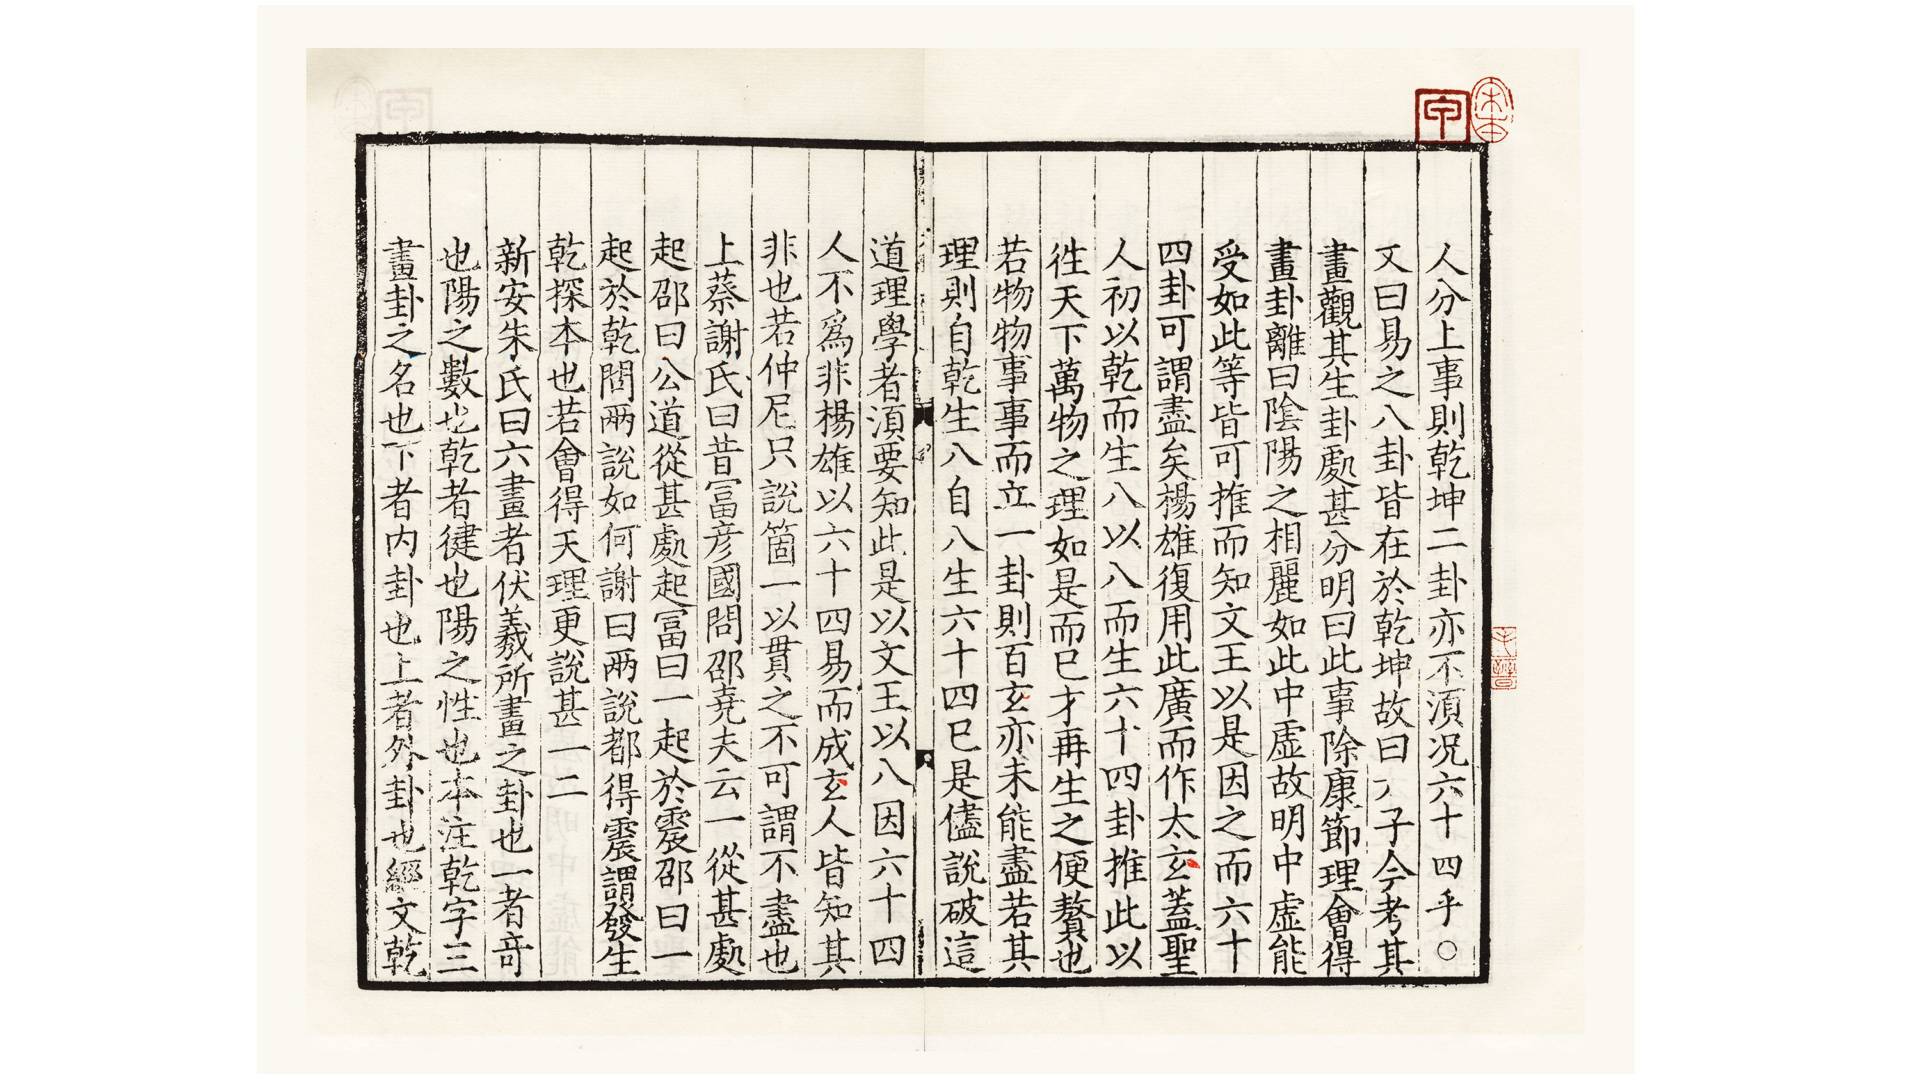 人分上事則乾坤二卦亦不湏况六十四乎○
又曰易之八卦皆在於乾坤故曰八子今考其
畫觀其生卦處甚分明曰此事除康節理會得
畫卦離曰陰陽之相麗如此中虚故明中虚能
受如此等皆可推而知文王以是因之而六十
四卦可謂盡矣楊雄復用此廣而作太玄蓋聖
人初以乾而生八以八而生六十四卦推此以
徃天下萬物之理如是而已才再生之便贅也
若物物事事而立一卦則百玄亦未能盡若其
理則自乾生八自八生六十四已是儘說破這
道理學者湏要知此是以文王以八因六十四
人不為非楊雄以六十四易而成玄人皆知其
非也若仲尼只說箇一以貫之不可謂不盡也
上蔡謝氏曰昔冨彦國問邵堯夫云一從甚處
起邵曰公道從甚處起冨曰一起於震邵曰一
起於乾問兩說如何謝曰兩說都得震謂發生
乾探本也若會得天理更說甚一二
新安朱氏曰六畫者伏羲所畫之卦也一者竒
也陽之數也乾者健也陽之性也本注乾字三
畫卦之名也下者内卦也上者外卦也經文乾